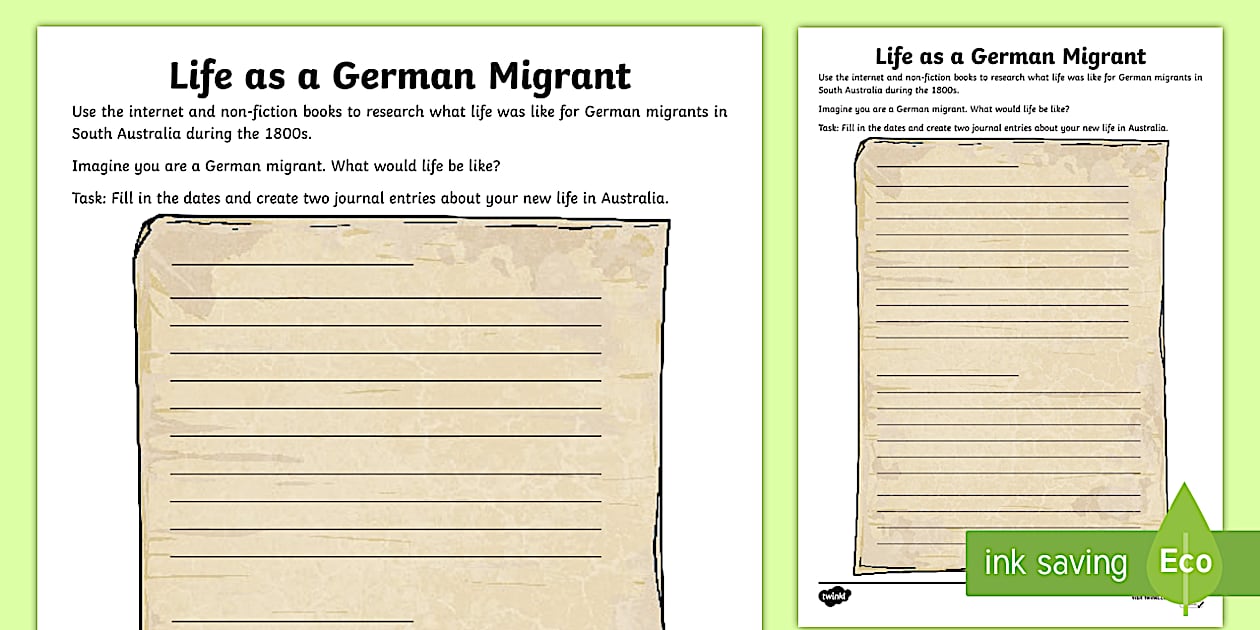 Life as a German Migrant
Use the internet and non-fiction books to research what life was like for German migrants in
South Australia during the 1800s.
Imagine you are a German migrant. What would life be like?
Task: Fill in the dates and create two journal entries about your new life in Australia.
Life as a German Migrant
Use the internet and non-fiction books to research what life was like for German migrants in
South Australia during the 1800s.
Imagine you are a German migrant. What would life be like?
Task: Fill in the dates and create two journal entries about your new life in Australia.
ink saving Eco
twinkl